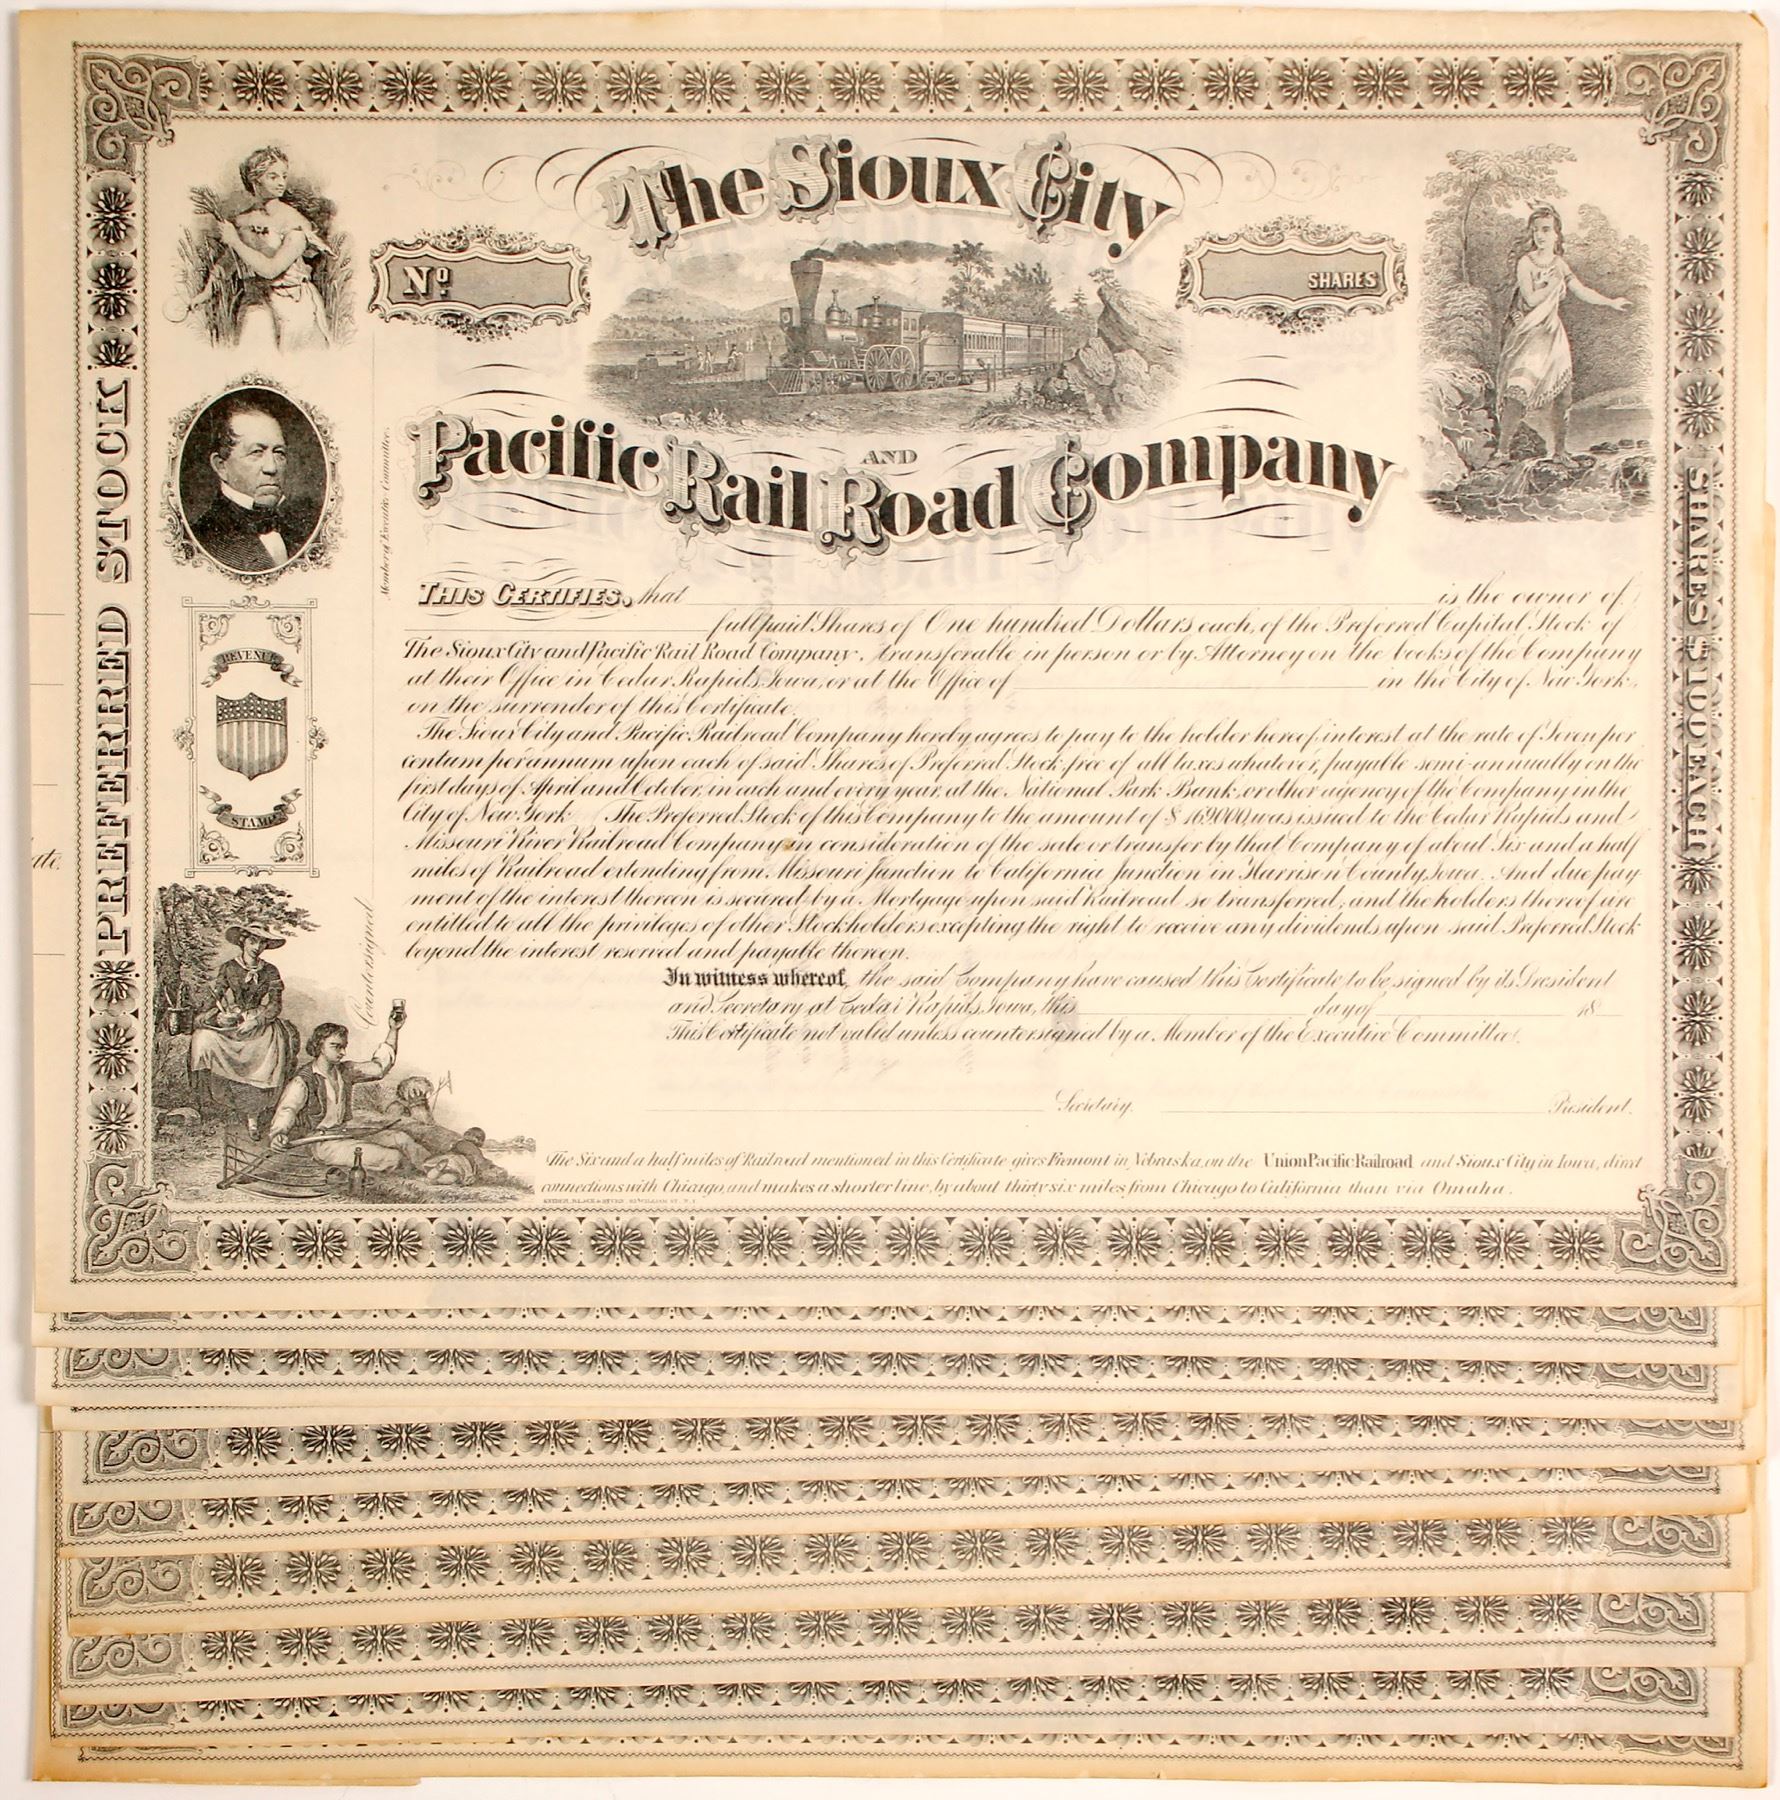 The Sioux City
Nº
SHARES
AND
Pacific Rail Road Company
PREFERRED STOCK
SHARES $100 EACH
Member of Executive Committee.
Countersigned
REVENUE
STAMP
THIS CERTIFIES, that is the owner of
full paid Shares of One hundred Dollars each, of the Preferred Capital Stock of
The Sioux City and Pacific Rail Road Company, transferable in person or by Attorney on the books of the Company
at their Office in Cedar Rapids, Iowa, or at the Office of in the City of New York,
on the surrender of this Certificate.
The Sioux City and Pacific Railroad Company hereby agrees to pay to the holder hereof, interest at the rate of Seven per
centum per annum upon each of said Shares of Preferred Stock, free of all taxes whatever, payable semi-annually on the
first days of April and October, in each and every year, at the National Park Bank, or other agency of the Company in the
City of New York. The Preferred Stock of this Company to the amount of $169000, was issued to the Cedar Rapids and
Missouri River Railroad Company in consideration of the sale or transfer by that Company of about Six and a half
miles of Railroad extending from Missouri Junction to California Junction in Harrison County, Iowa. And due pay-
ment of the interest thereon is secured by a Mortgage upon said Railroad so transferred, and the holders thereof are
entitled to all the privileges of other Stockholders excepting the right to receive any dividends upon said Preferred Stock
beyond the interest reserved and payable thereon.
In witness whereof, the said Company have caused this Certificate to be signed by its President
and Secretary at Cedar Rapids, Iowa, this day of 18
This Certificate not valid unless countersigned by a Member of the Executive Committee.
Secretary. President.
The Six and a half miles of Railroad mentioned in this Certificate gives Fremont in Nebraska, on the Union Pacific Railroad and Sioux City in Iowa, direct
connections with Chicago, and makes a shorter line, by about thirty six miles, from Chicago to California than via Omaha.